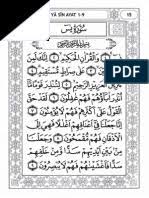 YÂ SÎN AYAT 1-9
15
سُورَةُ يٰسٓ
بِسْمِ اللهِ الرَّحْمٰنِ الرَّحِيمِ
يٰسٓ وَالْقُرْاٰنِ الْحَكِيمِ اِنَّكَ لَمِنَ
الْمُرْسَلِينَ عَلٰى صِرَاطٍ مُسْتَقِيمٍ
تَنْزِيلَ الْعَزِيزِ الرَّحِيمِ لِتُنْذِرَ قَوْمًا مَا
اُنْذِرَ اٰبَاؤُهُمْ فَهُمْ غَافِلُونَ لَقَدْ حَقَّ
الْقَوْلُ عَلٰى اَكْثَرِهِمْ فَهُمْ لَا يُؤْمِنُونَ
اِنَّا جَعَلْنَا فِى اَعْنَاقِهِمْ اَغْلَالًا فَهِىَ اِلَى
الْاَذْقَانِ فَهُمْ مُقْمَحُونَ وَجَعَلْنَا
مِنْ بَيْنِ اَيْدِيهِمْ سَدًّا وَمِنْ خَلْفِهِمْ
سَدًّا فَاَغْشَيْنَاهُمْ فَهُمْ لَا يُبْصِرُونَ